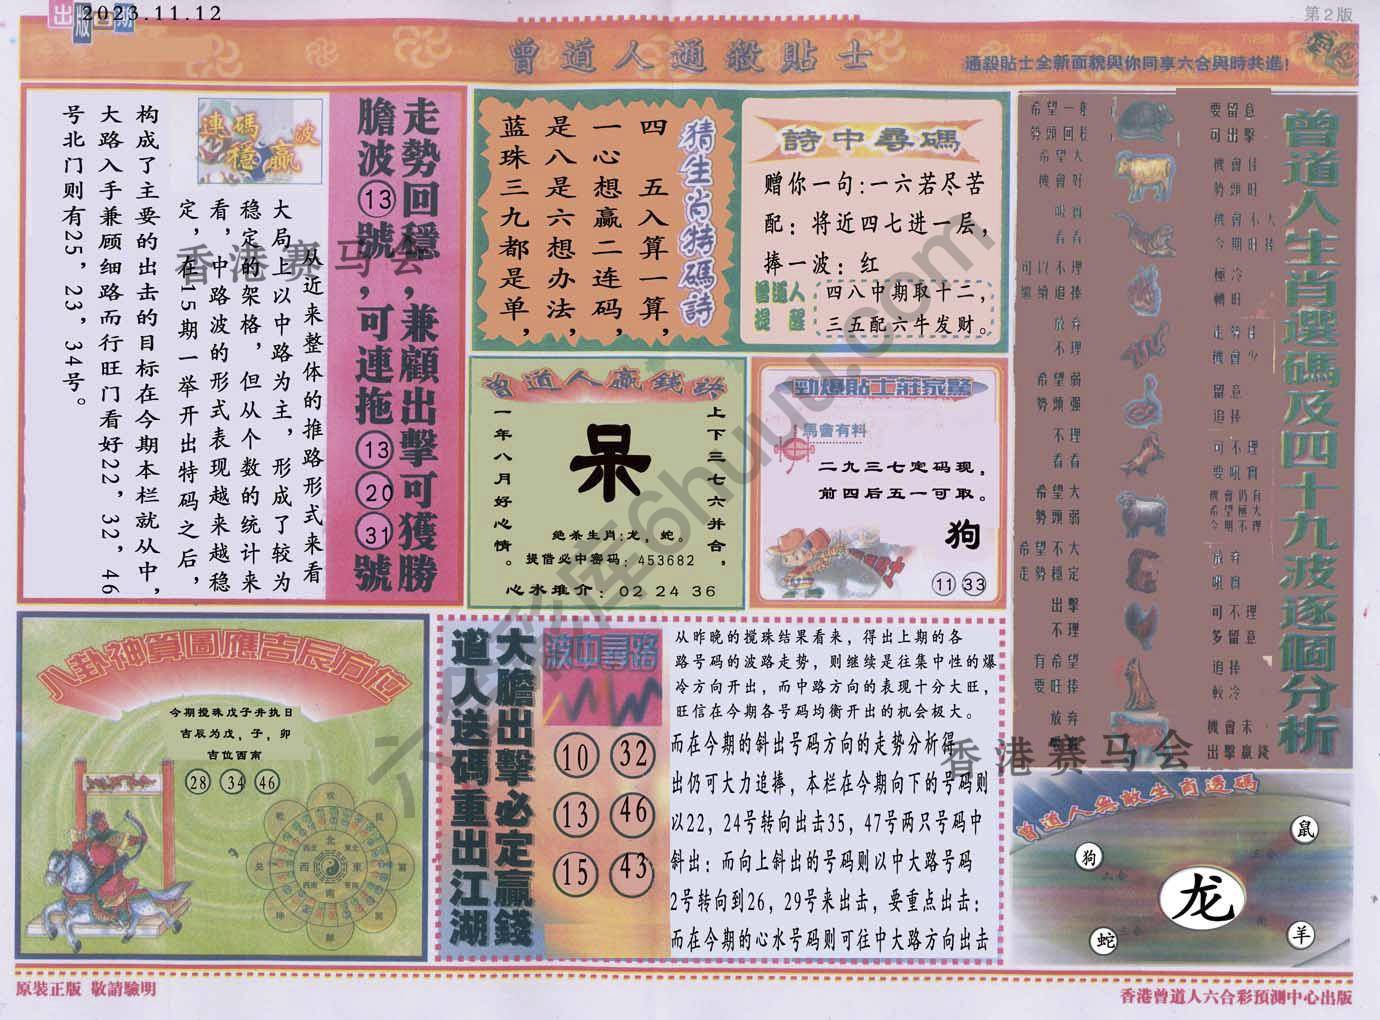 出版日期
2023.11.12
第2版
曾道人通殺貼士
通殺貼士全新面貌與你同享六合與時共進!
走勢回穩,兼顧出擊可獲勝
膽波⑬號,可連拖⑬⑳㉛號
連碼穩贏波
从近来整体的推路形式来看
大局上以中路为主,形成了较为
稳定的架格,但从个数的统计来
看,中路波的形式表现越来越稳
定,在15期一举开出特码之后,
构成了主要的出击的目标在今期本栏就从中,
大路入手兼顾细路而行旺门看好22,32,46
号北门则有25,23,34号。
猜生肖特碼詩
四五入算一算,
一心想赢二连码,
是八是六想办法,
蓝珠三九都是单,
詩中尋碼
赠你一句:一六若尽苦
配:将近四七进一层,
捧一波:红
曾道人
提醒
四八中期取十二,
三五配六牛发财。
曾道人贏錢訣
上下三七六并合,
呆
一年八月好心情。
绝杀生肖:龙,蛇。
提借必中密码:453682
心水堆介:02 24 36
勁爆貼士莊家驚
馬會有料
二九三七定码现,
前四后五一可取。
狗
11 33
曾道人生肖選碼及四十九波逐個分析
希望一般
勢頭回穩
要留意
可出擊
希望大
機會好
機會佳
勢頭旺
看看
機會不大
今期旺捧
可以不理
繼續追捧
極冷
轉旺
放弃
不理
機會少
希望弱
勢頭强
留意
追捧
不理
看看
可不理
要吼實
希望大
勢頭弱
機會仍有
希望極大
今期不理
希望不大
走勢穩定
放弃
吼實
出擊
不理
可不理
多留意
有希望
要旺捧
追捧
較冷
放弃
機會未
出擊贏錢
八卦神算圖應吉辰方位
今期搅珠戊子井执日
吉辰为戊,子,卯
吉位西南
28 34 46
北
東北
東
東南
南
西南
西
西北
大膽出擊必定贏錢
道人送碼重出江湖
波中尋路
10 32
13 46
15 43
从昨晚的搅珠结果看来,得出上期的各
路号码的波路走势,则继续是往集中性的爆
冷方向开出,而中路方向的表现十分大旺,
旺信在今期各号码均衡开出的机会极大。
而在今期的斜出号码方向的走势分析得
出仍可大力追捧,本栏在今期向下的号码则
以22,24号转向出击35,47号两只号码中
斜出:而向上斜出的号码则以中大路号码
2号转向到26,29号来出击,要重点出击:
而在今期的心水号码则可往中大路方向出击
曾道人無敵生肖透碼
鼠
狗
龙
蛇
羊
香港赛马会
香港赛马会
六彩库6huu.com
原裝正版 敬請驗明
香港曾道人六合彩預測中心出版